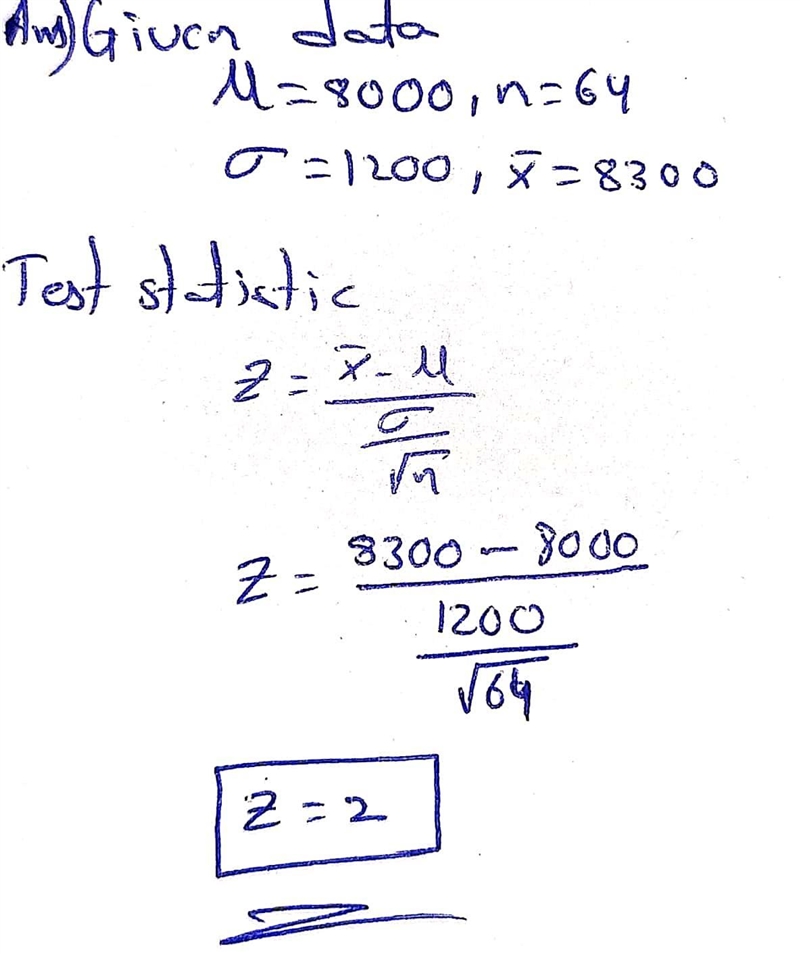 Ans) Given data
μ = 8000, n = 64
σ = 1200, x̄ = 8300
Test statistic
z = (x̄ - μ) / (σ / √n)
z = (8300 - 8000) / (1200 / √64)
z = 2